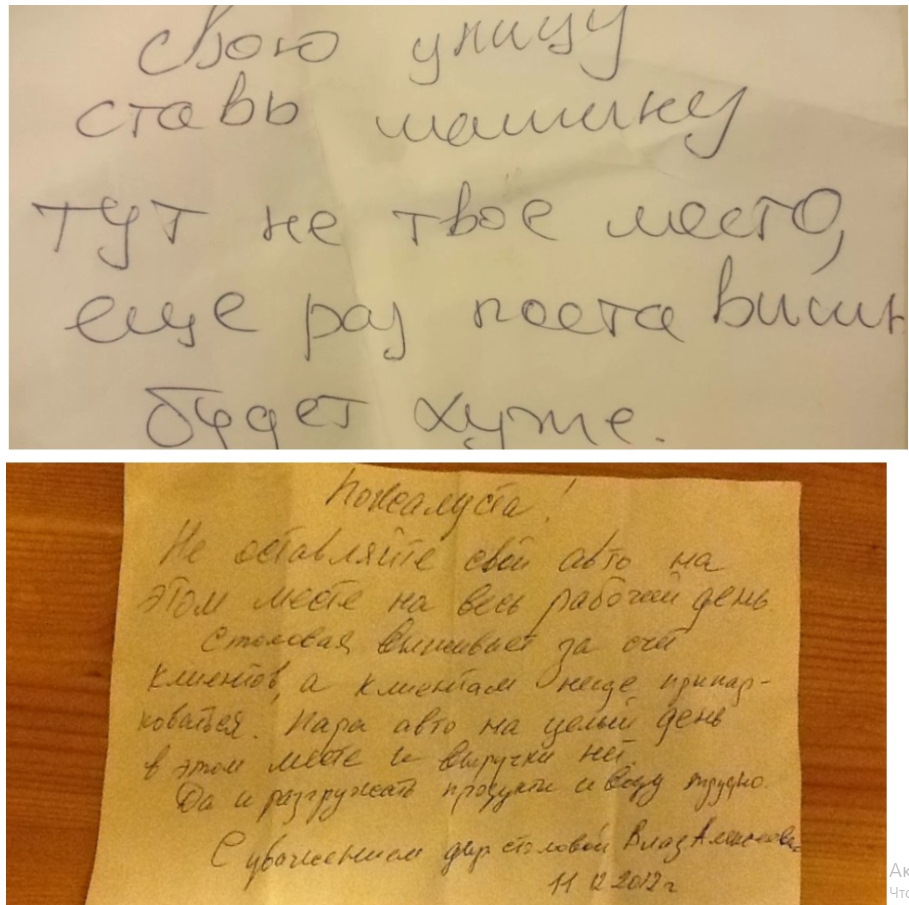 свою улицу
ставь машину
тут не твое место,
еще раз поставишь
будет хуже.
Пожалуста!
Не оставляйте свой авто на
этом месте на весь рабочий день.
Столовая выживает за счёт
клиентов, а клиентам негде припар-
коваться. Пара авто на целый день
в этом месте и выручки нет.
Да и разгружать продукты и воду трудно.
С уважением дир столовой Влад
11 12 2012 г